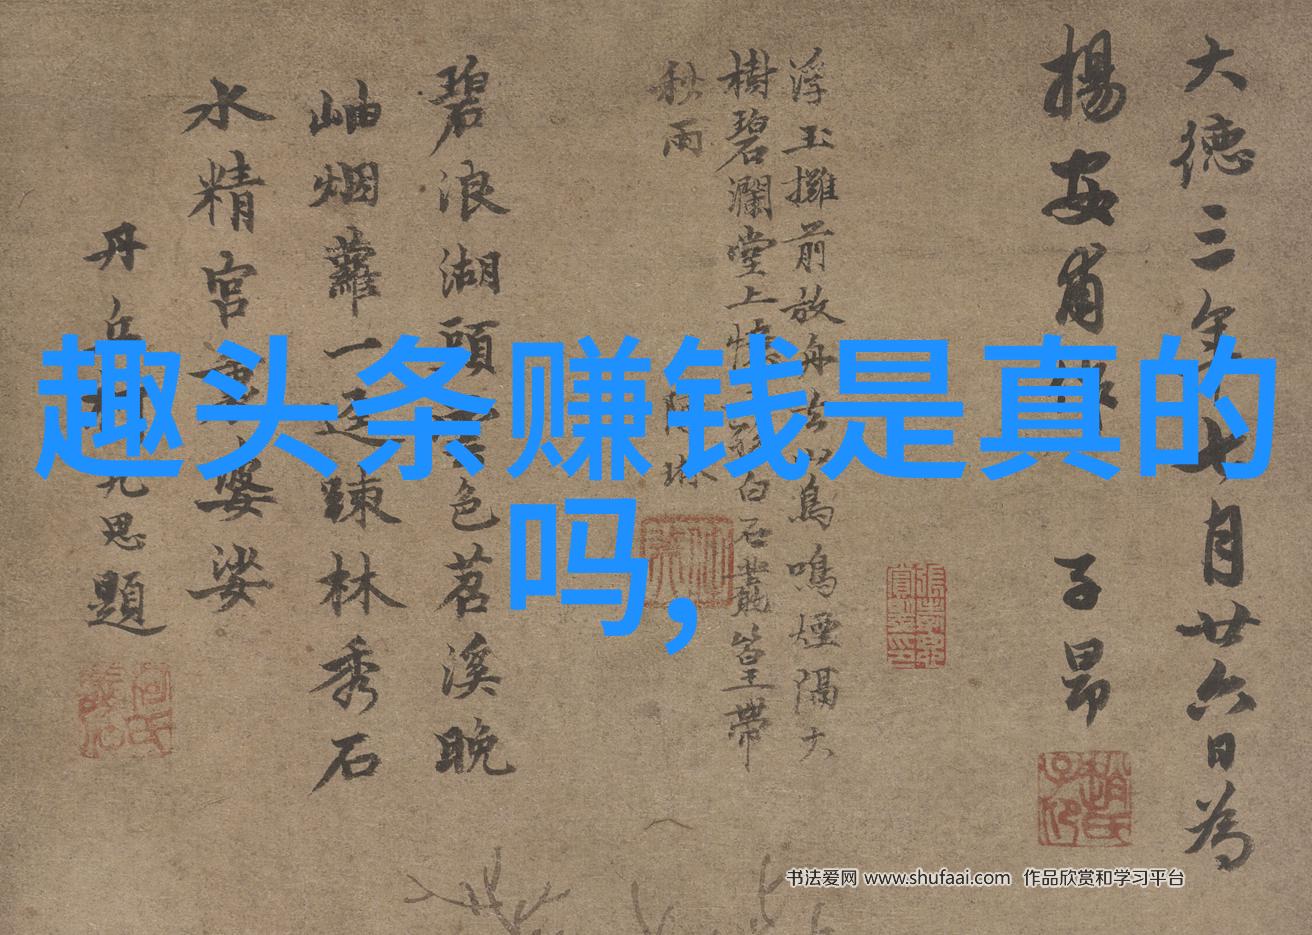 趣头条赚钱是真的
吗,
大德三年七月廿六日為
揚安甫作 子昂
浮玉攤前放舟去山鳥鳴煙隔大
樹碧瀾堂上憶 白石 篁帶
秋雨
碧浪湖頭 色苕溪晚
岫烟蘿一逕踈林秀石
水精宮 婆娑
丹丘 九思題
书法爱网 www.shufaai.com 作品欣赏和学习平台